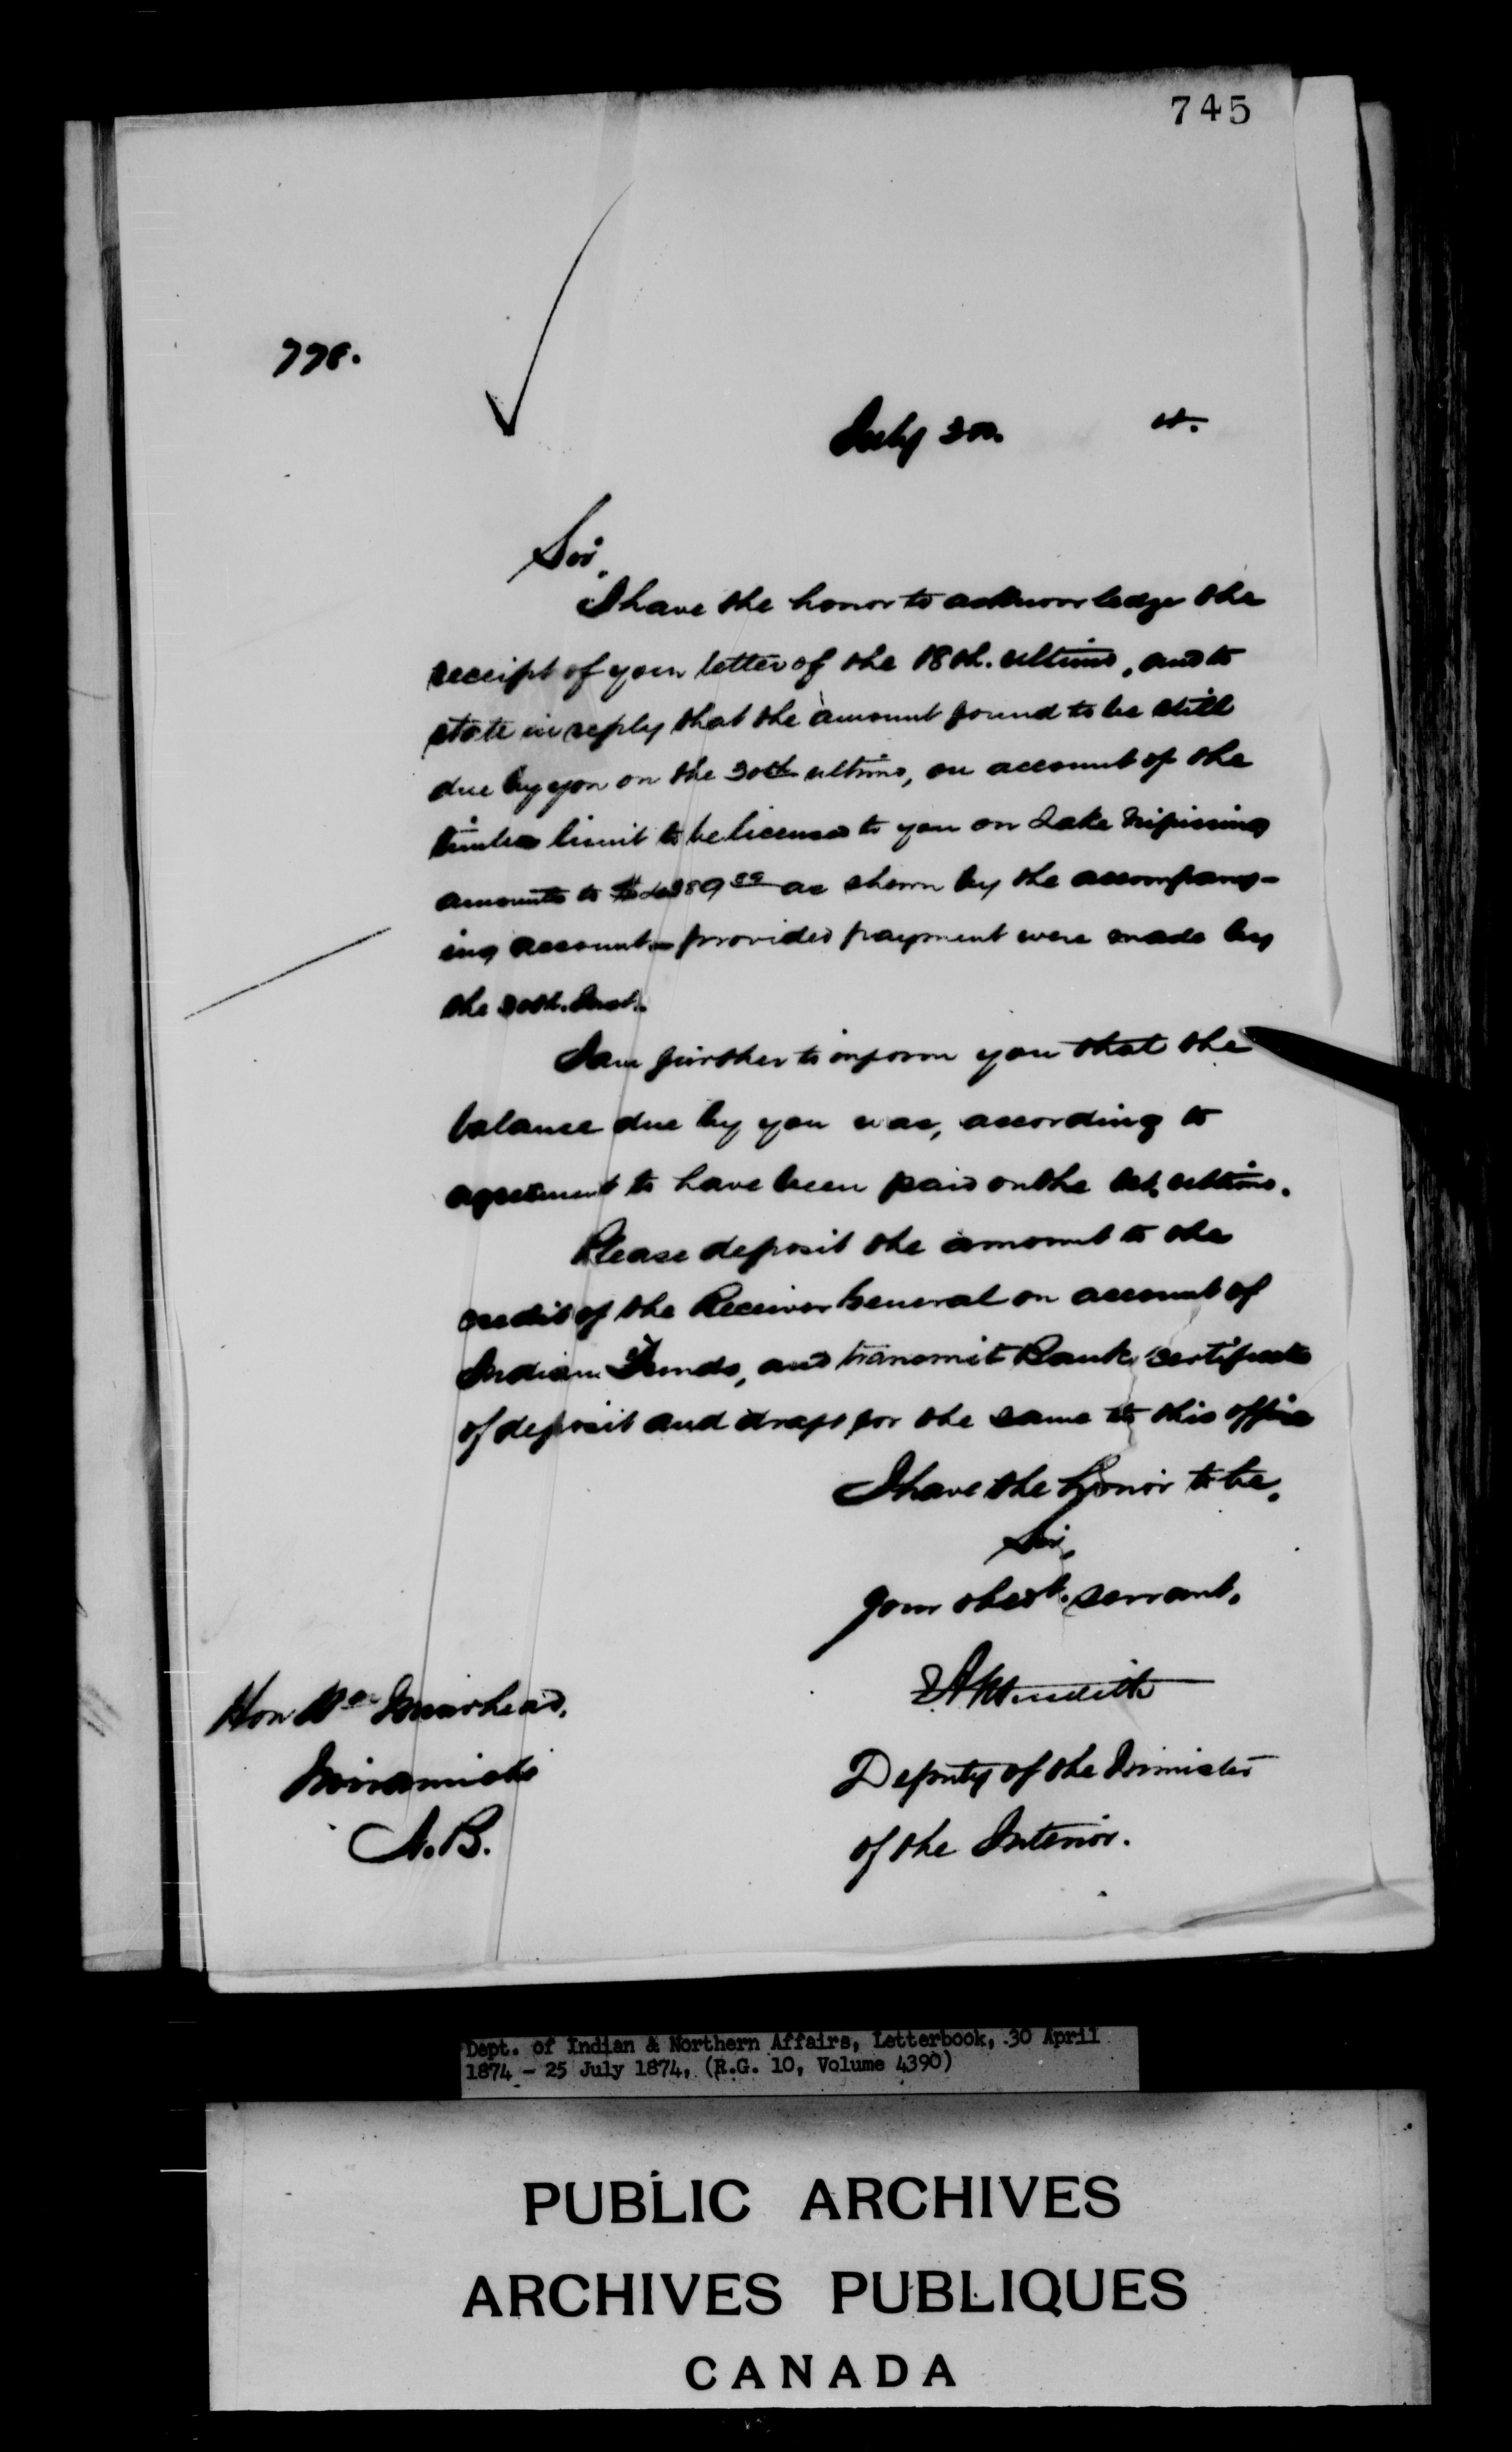 745
778.
July
Sir,
I have the honor to acknowledge the
receipt of your letter of the 18th. ultimo, and to
state in reply that the amount found to be still
due by you on the 30th ultimo, on account of the
timber limit to be licensed to you on Lake Nipissing
amounts to as shown by the accompany-
ing account provided payment were made by
the Inst.
I am further to inform you that the
balance due by you was, according to
agreement to have been paid on the ultimo.
Please deposit the amount to the
credit of the Receiver General on account of
Indian Funds, and transmit Bank certificate
of deposit and draft for the same to this office
I have the honor to be,
Sir,
Your obedt. servant,
E A Meredith
Deputy of the Minister
of the Interior.
Hon Wm Muirhead,
Miramichi
N.B.
Dept. of Indian & Northern Affairs, Letterbook, 30 April
1874 - 25 July 1874, (R.G. 10, Volume 4390)
PUBLIC ARCHIVES
ARCHIVES PUBLIQUES
CANADA